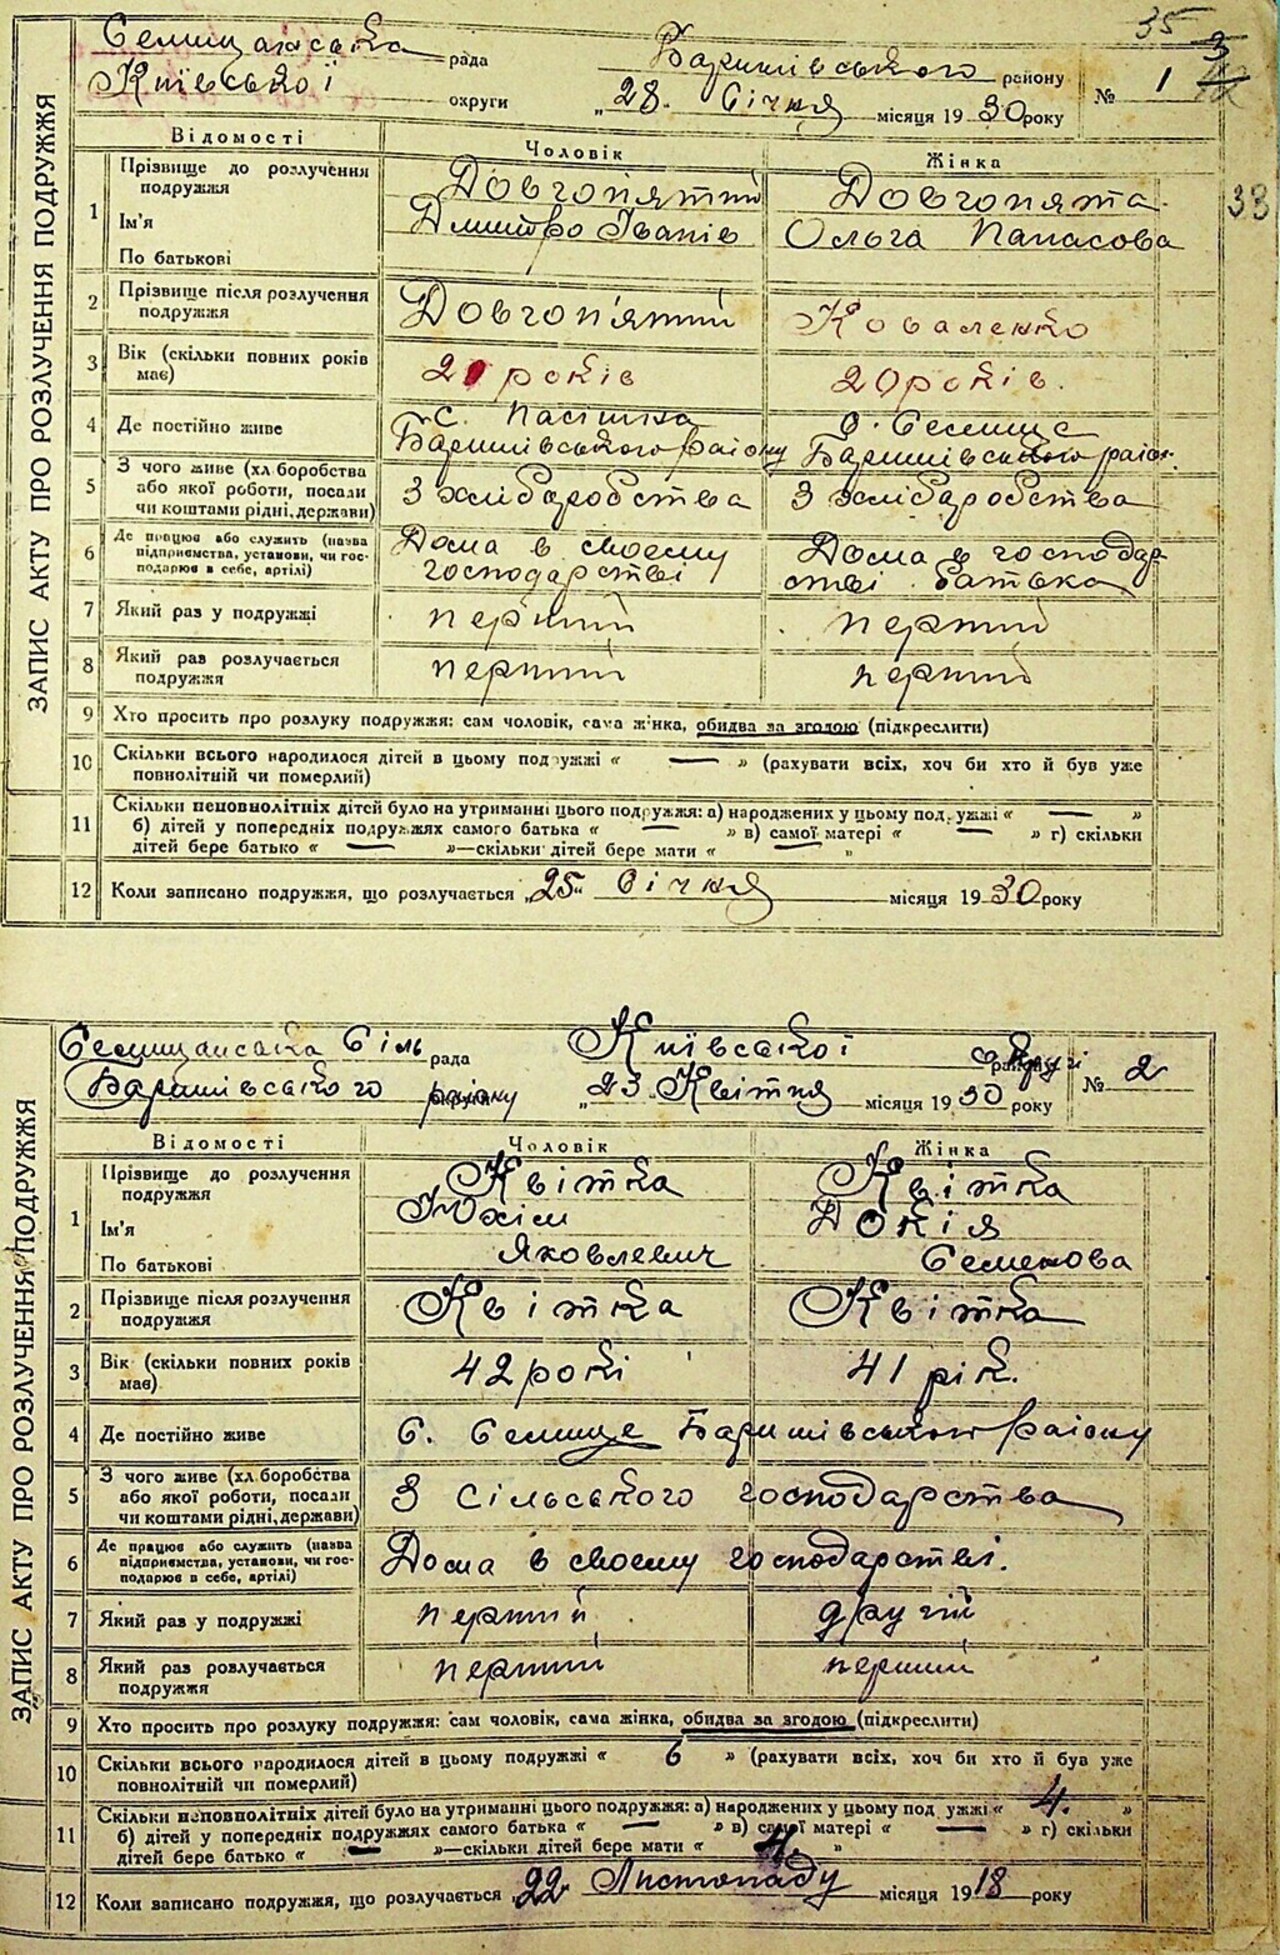 35 3
Селищанська рада Баришівського району № 1
Київської округи „28" Січня місяця 1930 року
ЗАПИС АКТУ ПРО РОЗЛУЧЕННЯ ПОДРУЖЖЯ
Відомості Чоловік Жінка
33
1 Прізвище до розлучення подружжя Довгопятий Довгопята
Ім'я Дмитро Іванів Ольга Панасова
По батькові
2 Прізвище після розлучення подружжя Довгоп'ятий Коваленко
3 Вік (скільки повних років має) 21 років 20 років.
4 Де постійно живе с. Пасішка Баришівського району с. Селище Баришівського район.
5 З чого живе (хліборобства або якої роботи, посади чи коштами рідні, держави) З хліборобства З хліборобства
6 Де працює або служить (назва підприємства, установи, чи господарює в себе, артілі) Дома в своєму господарстві Дома в господарстві батька
7 Який раз у подружжі перший перший
8 Який раз розлучається подружжя перший перший
9 Хто просить про розлуку подружжя: сам чоловік, сама жінка, обидва за згодою (підкреслити)
10 Скільки всього народилося дітей в цьому подружжі « — » (рахувати всіх, хоч би хто й був уже
повнолітній чи померлий)
11 Скільки неповнолітніх дітей було на утриманні цього подружжя: а) народжених у цьому подружжі « — »
б) дітей у попередніх подружжях самого батька « — » в) самої матері « — » г) скільки
дітей бере батько « — »—скільки дітей бере мати « — »
12 Коли записано подружжя, що розлучається „25" Січня місяця 1930 року
Селищанська Сіль рада Київської округи № 2
Баришівського району „23" Квітня місяця 1930 року
ЗАПИС АКТУ ПРО РОЗЛУЧЕННЯ ПОДРУЖЖЯ
Відомості Чоловік Жінка
1 Прізвище до розлучення подружжя Квітка Квітка
Ім'я Юхім Докія
По батькові Яковлевич Семенова
2 Прізвище після розлучення подружжя Квітка Квітка
3 Вік (скільки повних років має) 42 рокі 41 рік.
4 Де постійно живе С. Селище Баришівського району
5 З чого живе (хліборобства або якої роботи, посади чи коштами рідні, держави) З сільського господарства
6 Де працює або служить (назва підприємства, установи, чи господарює в себе, артілі) Дома в своєму господарстві.
7 Який раз у подружжі перший другій
8 Який раз розлучається подружжя перший перший
9 Хто просить про розлуку подружжя: сам чоловік, сама жінка, обидва за згодою (підкреслити)
10 Скільки всього народилося дітей в цьому подружжі « 6 » (рахувати всіх, хоч би хто й був уже
повнолітній чи померлий)
11 Скільки неповнолітніх дітей було на утриманні цього подружжя: а) народжених у цьому подружжі « 4. »
б) дітей у попередніх подружжях самого батька « — » в) самої матері « — » г) скільки
дітей бере батько « — »—скільки дітей бере мати « 4. »
12 Коли записано подружжя, що розлучається „22" Листопаду місяця 1918 року